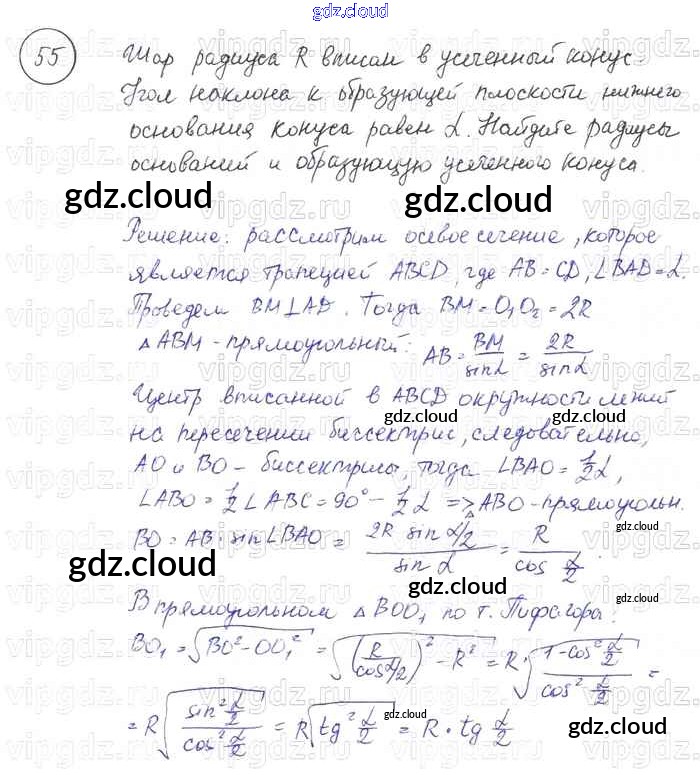 gdz.cloud
55
Шар радиуса R вписан в усеченный конус.
Угол наклона к образующей плоскости нижнего
основания конуса равен α. Найдите радиусы
оснований и образующую усеченного конуса.
gdz.cloud gdz.cloud
Решение: рассмотрим осевое сечение, которое
является трапецией ABCD, где AB = CD, ∠BAD = α.
Проведем BM⊥AD. Тогда BM = O₁O₂ = 2R
△ABM - прямоугольный: AB = BM/sinα = 2R/sinα
Центр вписанной в ABCD окружности лежит
gdz.cloud gdz.cloud
на пересечении биссектрис, следовательно,
AO и BO - биссектрисы, тогда ∠BAO = 1/2 α,
∠ABO = 1/2 ∠ABC = 90° - 1/2 α => △ABO - прямоугольн.
gdz.cloud
BO = AB · sin∠BAO = 2R sin α/2 / sin α = R / cos α/2
gdz.cloud gdz.cloud
В прямоугольном △BOO₁ по т. Пифагора:
BO₁ = √(BO² - OO₁²) = √((R/cos α/2)² - R²) = R · √((1-cos² α/2)/(cos² α/2)) =
= R √(sin² α/2 / cos² α/2) = R √(tg² α/2) = R · tg α/2
gdz.cloud gdz.cloud